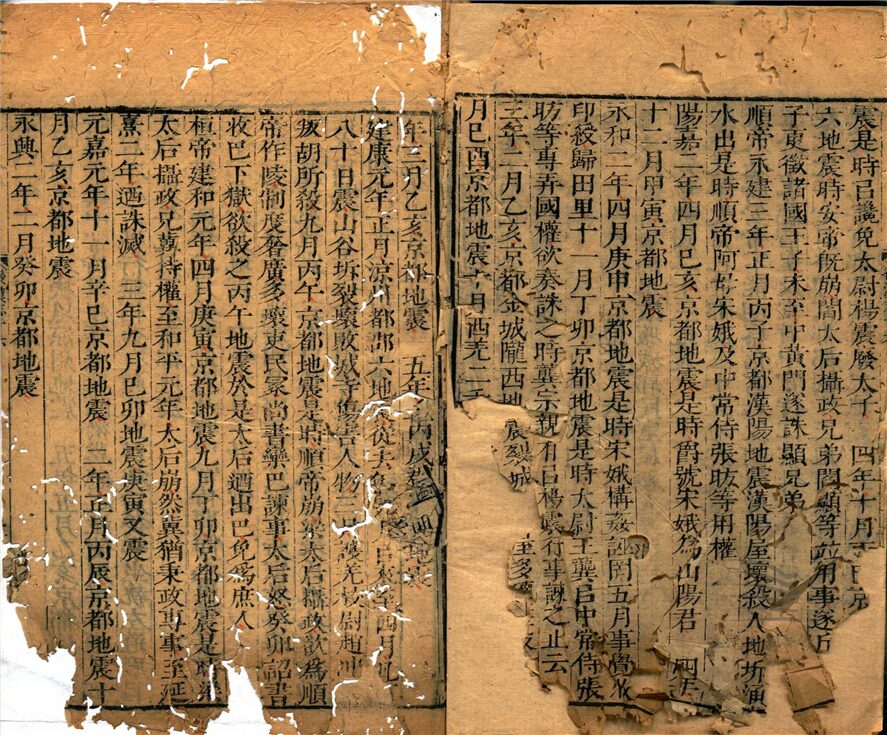 震是時以讒免太尉楊震廢太子 四年十月
六地震時安帝既崩閻太后攝政兄弟閻顯等並用事遂斥
子更徵諸國王子未至中黃門遂誅顯兄弟
順帝永建三年正月丙子京都漢陽地震漢陽屋壞殺人地坼涌
水出是時順帝阿母宋娥及中常侍張昉等用權
陽嘉二年四月己亥京都地震是時爵號宋娥為山陽君 四年
十二月甲寅京都地震
永和二年四月庚申京都地震是時宋娥構姦誣罔五月事覺收
印殺歸田里十一月丁卯京都地震是時太尉王龔以中常侍張
昉等專弄國權欲奏誅之時龔宗親有以楊震行事諫之止云
三年二月乙亥京都金城隴西地震裂城
月己酉京都地震十月西羌二
年二月乙亥京都地震 五年 丙戌
建康元年正月涼州都郡六地 從去
八十日震山谷坼裂壞敗城寺傷害人物三 護羌校尉趙沖
叛胡所殺九月丙午京都地震是時順帝崩梁太后攝政欲為順
帝作陵制度奢廣多壞吏民冢尚書欒巴諫事太后怒癸卯詔書
收巴下獄欲殺之丙午地震於是太后迺出巴免為庶人
桓帝建和元年四月庚寅京都地震九月丁卯京都地震是時梁
太后攝政兄冀持權至和平元年太后崩然冀猶秉政專事至延
熹二年迺誅滅 三年九月己卯地震庚寅又震
元嘉元年十一月辛巳京都地震 二年正月丙辰京都地震十
月乙亥京都地震
永興二年二月癸卯京都地震